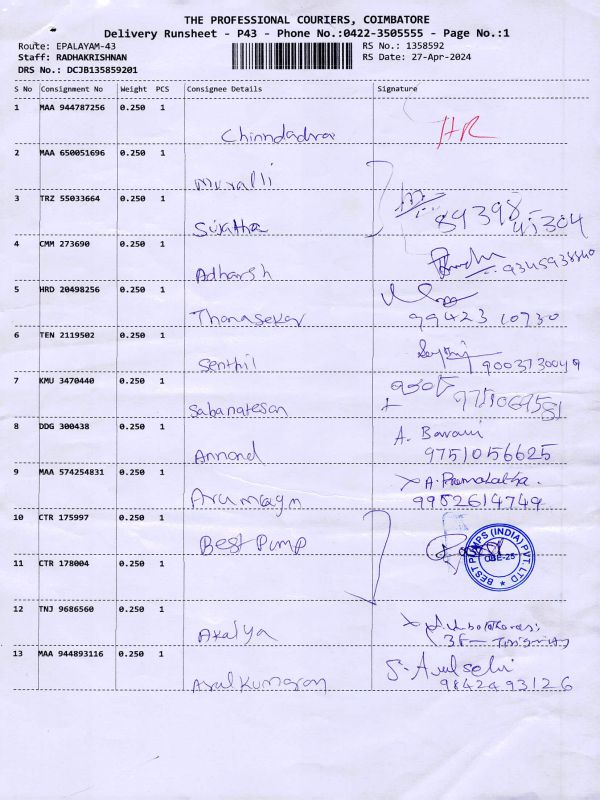 THE PROFESSIONAL COURIERS, COIMBATORE
Delivery Runsheet - P43 - Phone No.:0422-3505555 - Page No.:1
Route: EPALAYAM-43 RS No.: 1358592
Staff: RADHAKRISHNAN RS Date: 27-Apr-2024
DRS No.: DCJB135859201
S No Consignment No Weight PCS Consignee Details Signature
1 MAA 944787256 0.250 1
HR
2 MAA 650051696 0.250 1
Muralli
3 TRZ 55033664 0.250 1
Sujatha 89398 45304
4 CMM 273690 0.250 1
Adharsh 9345938840
5 HRD 20498256 0.250 1
Thanasekar 99423 10730
6 TEN 2119502 0.250 1
Senthil 9003730049
7 KMU 3470440 0.250 1
Sabanatesan 9751069581
8 DDG 300438 0.250 1 A. Bavani
Annand 9751056625
9 MAA 574254831 0.250 1 A. Premalatha.
Arumugm 9952614749
10 CTR 175997 0.250 1
Best Pump
BEST PUMPS (INDIA) PVT. LTD
CBE-25
11 CTR 178004 0.250 1
12 TNJ 9686560 0.250 1
Akalya 3F
13 MAA 944893116 0.250 1 S. Arulselvi
Arulkumaran 98424 93126